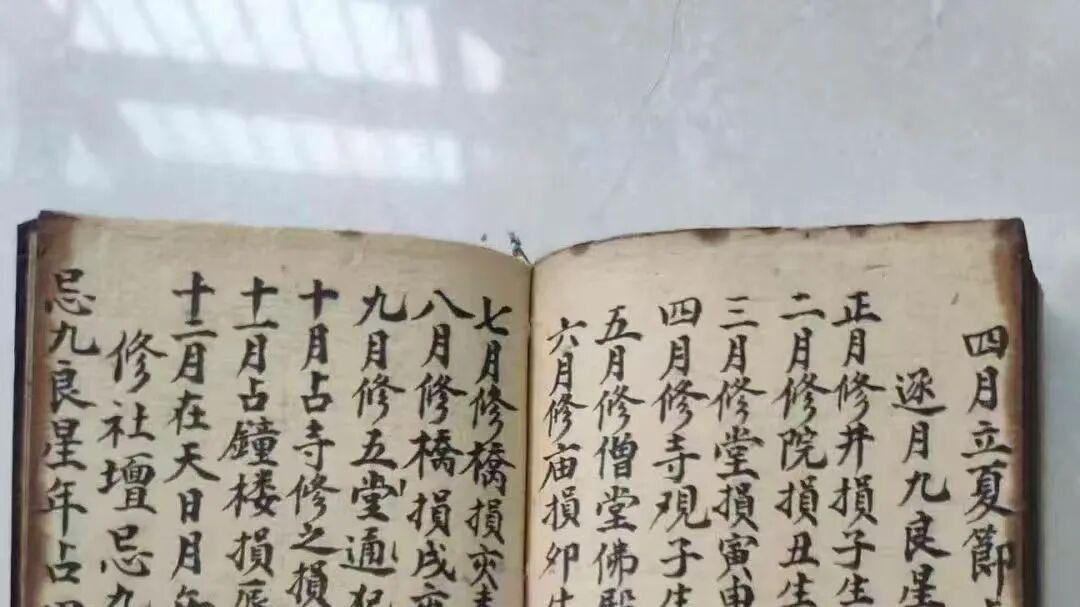 四月立夏節
逐月九良星
正月修井損子生
二月修院損丑生
三月修堂損寅申
四月修寺观子生
五月修僧堂佛殿
六月修庙損卯生
七月修橋損亥
八月修橋損戌亥
九月修五堂通犯
十月占寺修之損
十一月占鐘楼損辰
十二月在天日月年
修社壇忌九
忌九良星年占